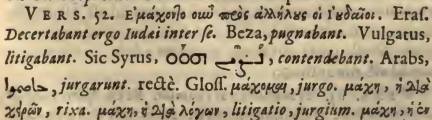 VERS. 52. Ἐμάχοντο οὖν πρὸς ἀλλήλους οἱ Ἰυδαῖοι. Eraſ.
Decertabant ergo Iudæi inter ſe. Beza, pugnabant. Vulgatus,
litigabant. Sic Syrus, ܗܘܘ, contendebant. Arabs,
jurgarunt. rectè. Gloſſ. μάχομαι, jurgo. μάχη, ἡ διὰ
χειρῶν, rixa. μάχη, ἡ διὰ λόγων, litigatio, jurgium. μάχη, ἡ ἐν